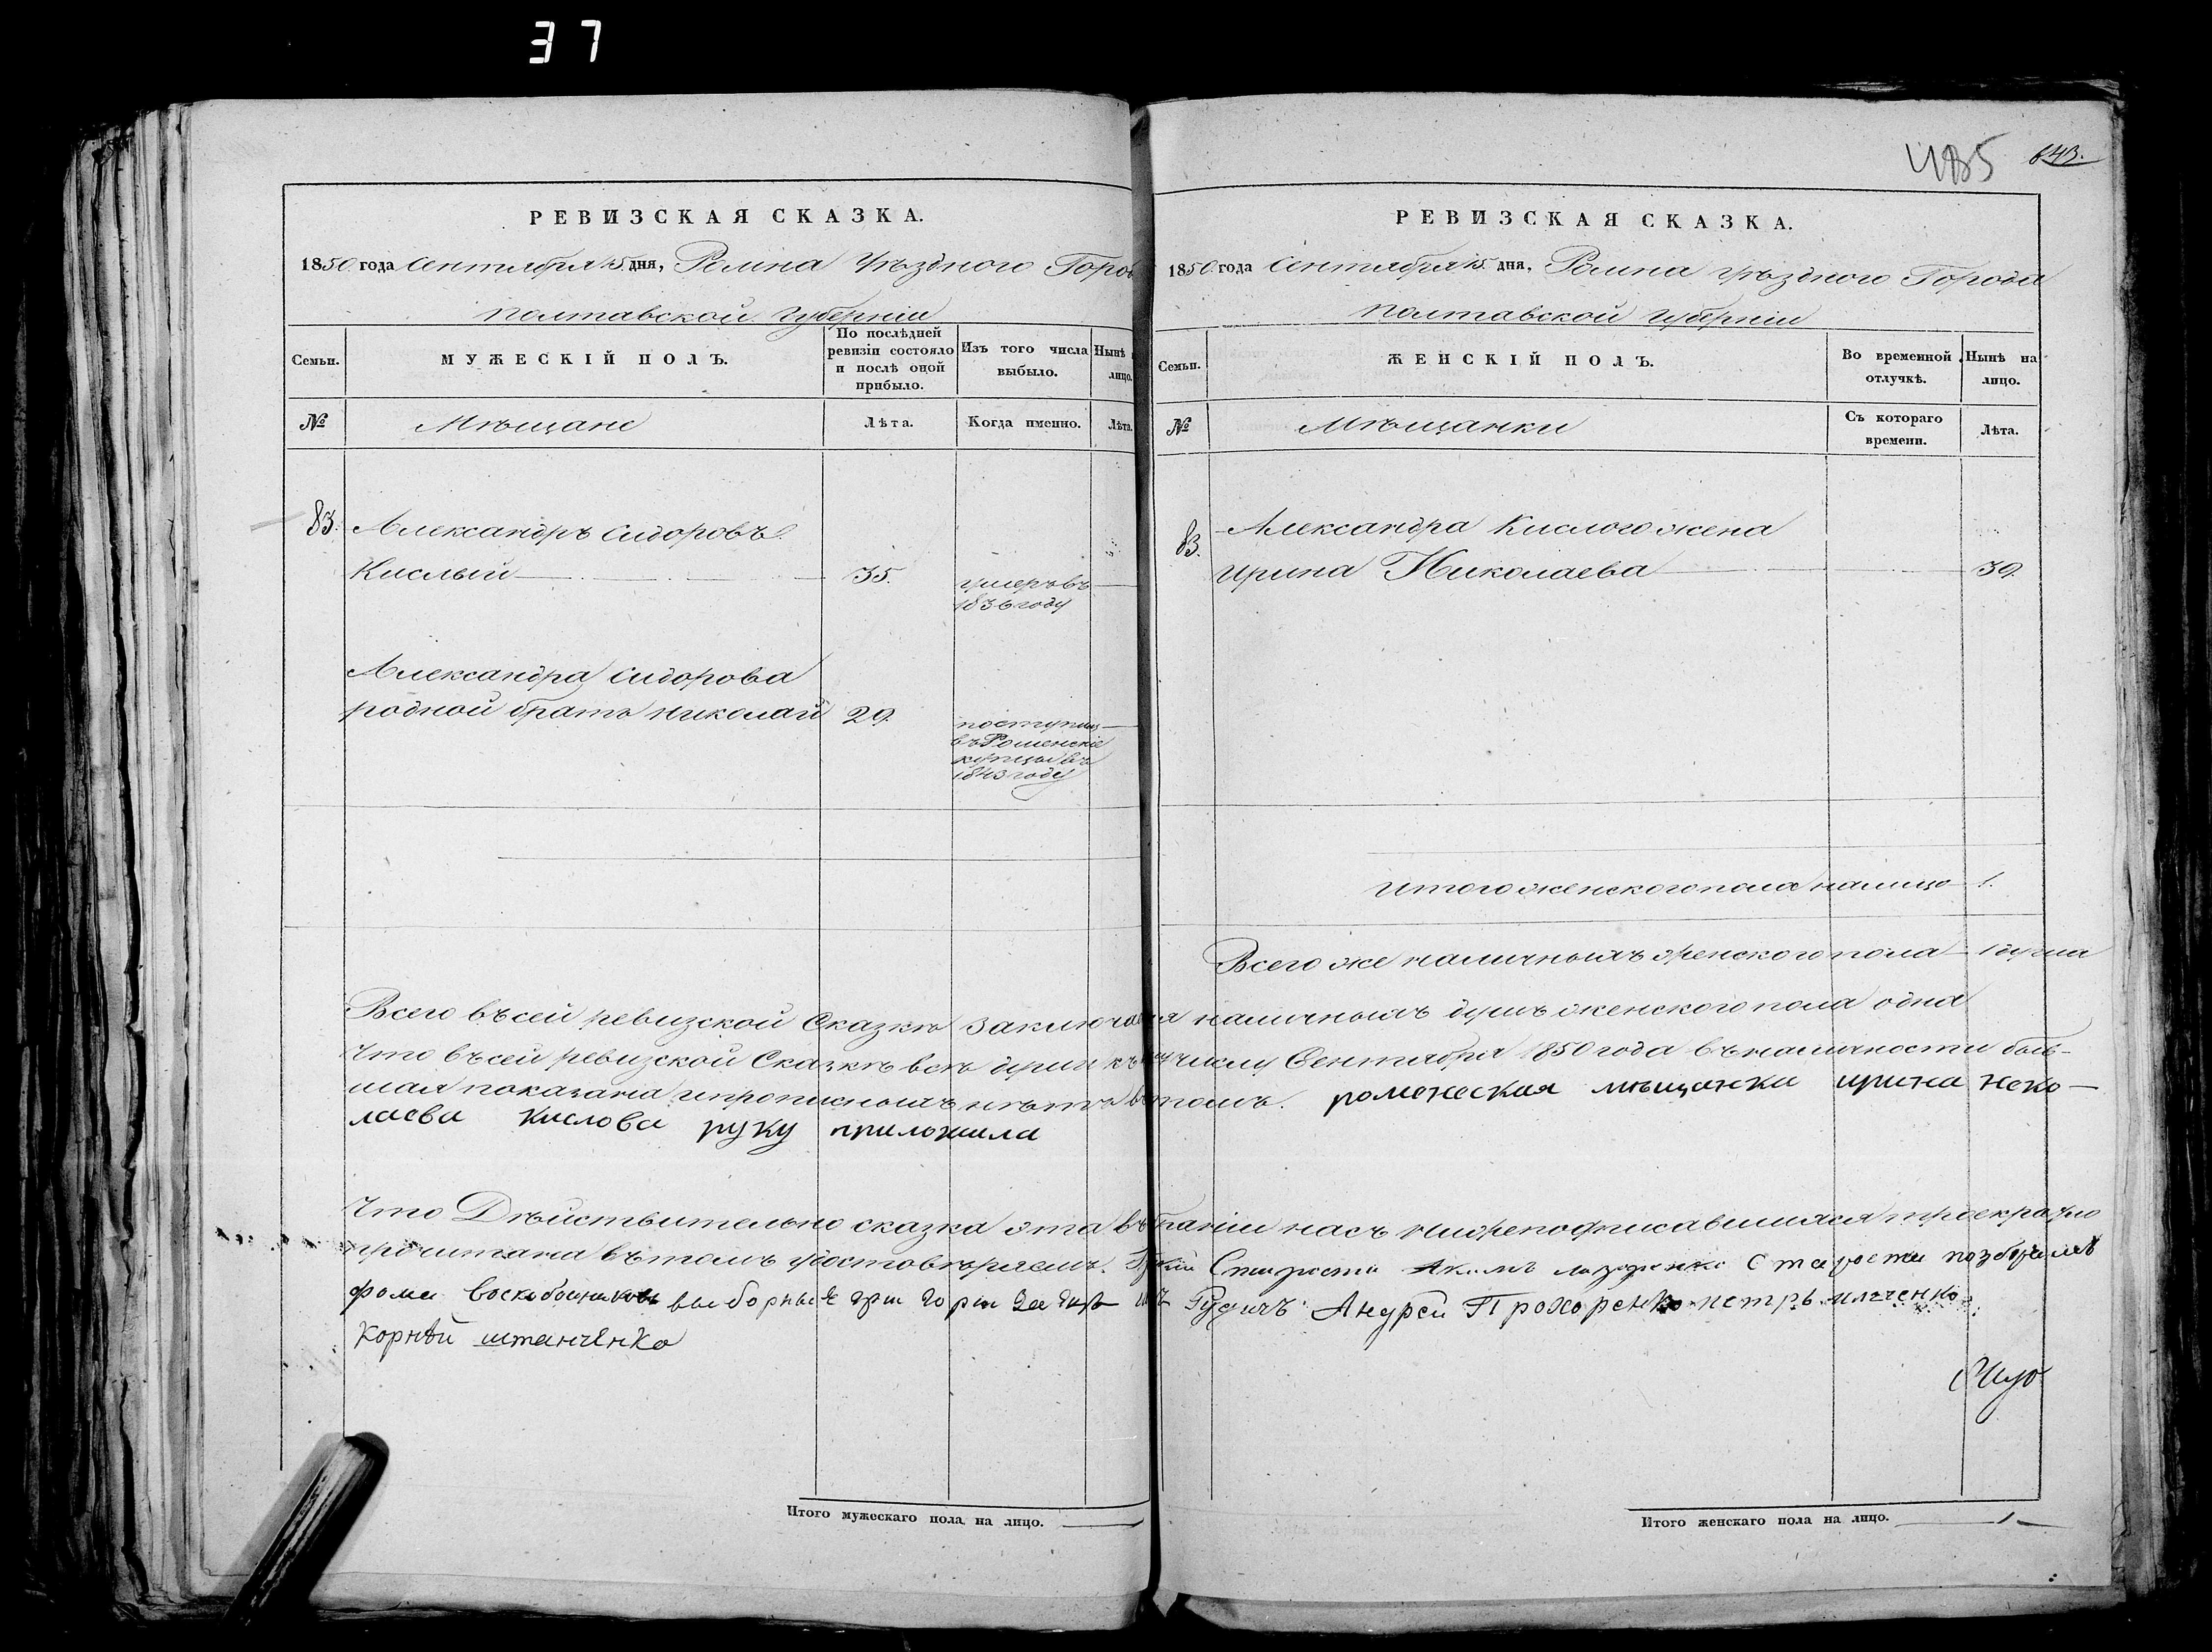 37
485 643.
РЕВИЗСКАЯ СКАЗКА.
1850 года Сентября 15 дня, Ромна Уѣзднаго Горо
Полтавской Губерніи
Семьи.
МУЖЕСКІЙ ПОЛЪ.
По послѣдней ревизіи состояло и послѣ оной прибыло.
Изъ того числа выбыло.
Нынѣ лицо.
№
Мѣщане
Лѣта.
Когда именно.
Лѣта.
83. Александръ Сидоровъ
Кислый 35. умеръ въ
1836 году
Александра Сидорова
родной братъ Николай 29. поступил
въ Роменскіе
купцы въ
1843 году
РЕВИЗСКАЯ СКАЗКА.
1850 года Сентября 15 дня, Ромна Уѣзднаго Города
Полтавской Губерніи
Семьи.
ЖЕНСКІЙ ПОЛЪ.
Во временной отлучкѣ.
Нынѣ на лицо.
№
Мѣщанки
Съ котораго времени.
Лѣта.
83. Александра Кислого жена
Ирина Николаева 39.
Итого женского пола налицо 1.
Всего же наличныхъ женского пола 1 душа
Всего въ сей ревизской Сказкѣ заключается наличныхъ душъ женского пола одна
Что въ сей ревизской Сказкѣ всѣ души къ числу Сентября 1850 года въ наличности быв-
шая показана и прописныхъ нѣтъ въ томъ. роменская мѣщанка ирина Нико-
лаева Кислова руку приложила
Что Дѣйствительно сказка эта въ нась нижеподписавшихся троекратно
прочитана въ томъ удостовѣряемъ. Старости
фома Воскобойниковъ выборные Рудичъ Андрей Прохоренко петръ
Корнѣй штанченко
Итого мужескаго пола на лицо. —
Итого женскаго пола на лицо. 1